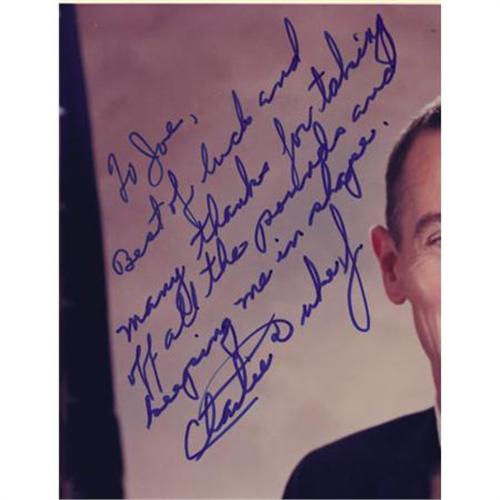 To Joe,
Best of luck and
many thanks for taking
off all the pounds and
keeping me in shape.
Charlie Duke Jr.